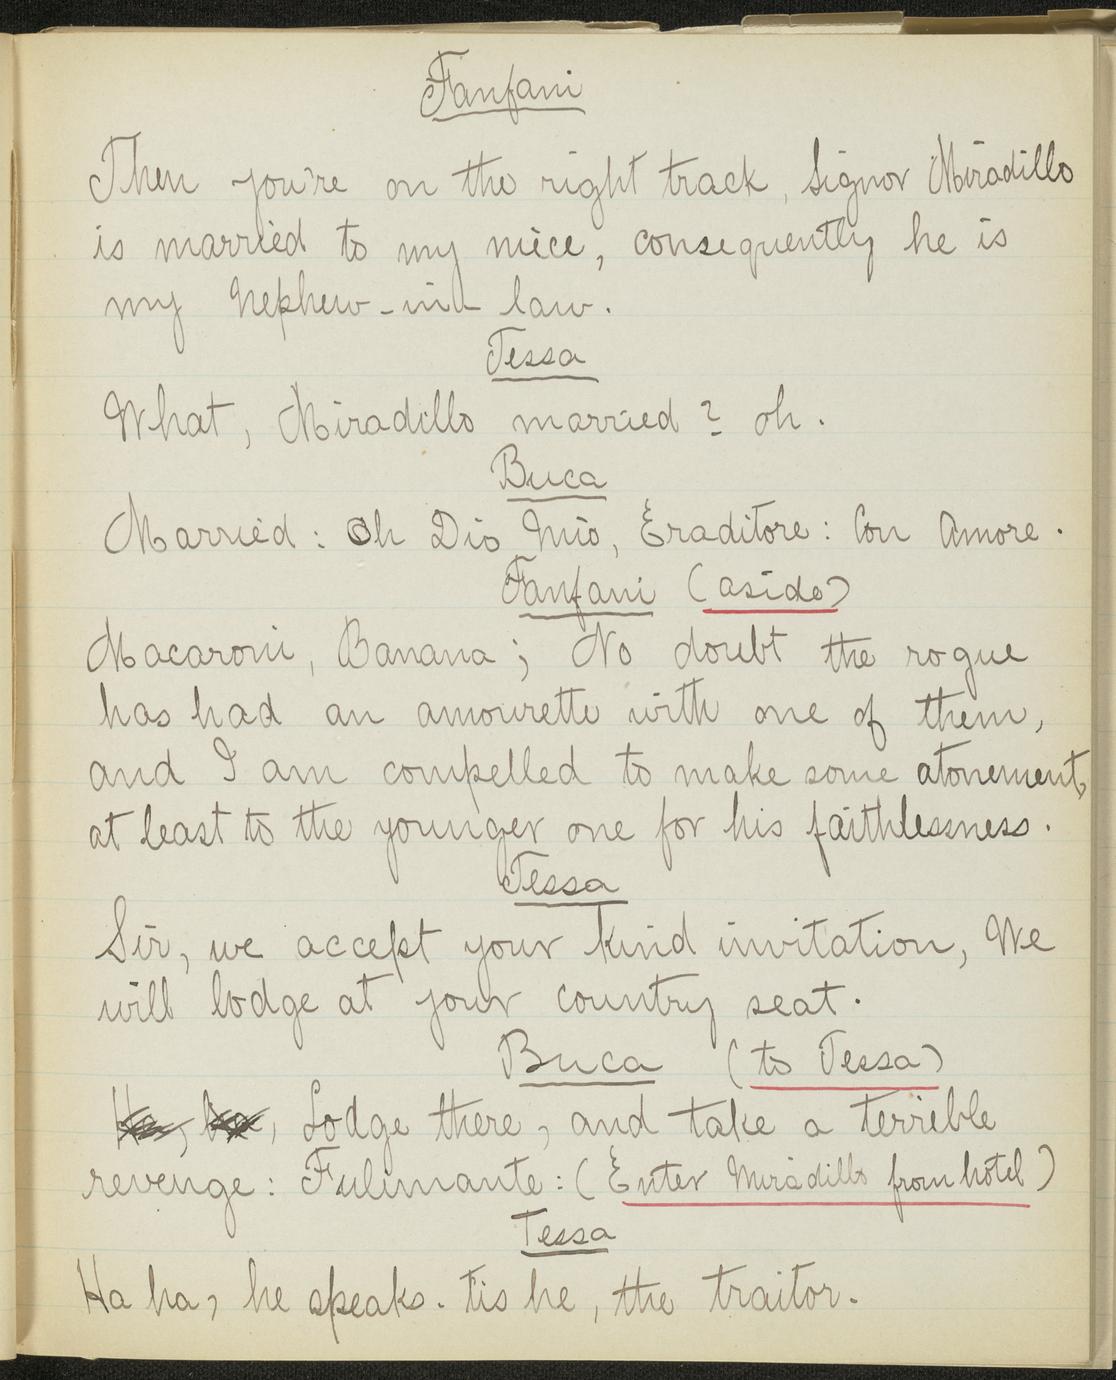 Fanfani
Then you're on the right track, Signor Miradillo
is married to my niece, consequently he is
my Nephew-in-law.
Tessa
What, Miradillo married? oh.
Buca
Married: Oh Dio Mio, Eraditore: Con Amore.
Fanfani (aside)
Macaroni, Banana; No doubt the rogue
has had an amourette with one of them,
and I am compelled to make some atonement,
at least to the younger one for his faithlessness.
Tessa
Sir, we accept your kind invitation, We
will lodge at your country seat.
Buca (to Tessa)
Ha, ha, Lodge there, and take a terrible
revenge: Fulimante: (Enter Miradillo from hotel)
Tessa
Ha ha, he speaks. tis he, the traitor.